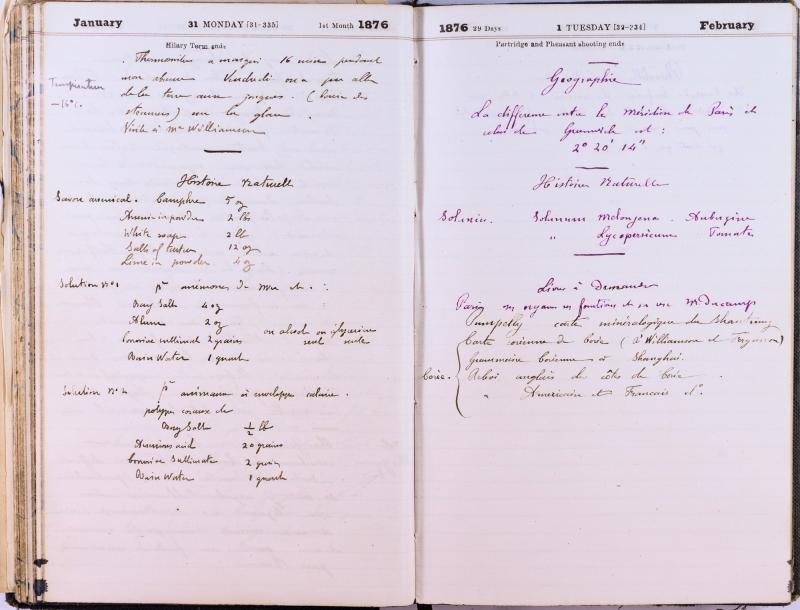 January 31 MONDAY [31-335] 1st Month 1876
Hilary Term ends
. Thermomètre a marqué 16 pendant
Température
mon absence Vendredi on a pu aller
-16°c.
de la terre aux jonques. (
) sur la glace.
Visite à Mr Williamson
Histoire Naturelle
Savon arsenical. Camphre 5 oz
Arsenic in powder 2 lbs
White soap 2 lb
Salts of tartar 12 oz
Lime in powder 4 oz
Solution No 1 pr anémones de mer et . :
Bay Salt 4 oz
Alum 2 oz
ou alcool ou glycerine
Corrosive sublimat 2 grains
seul seule
Rain Water 1 quart
Solution No 2 pr animaux à enveloppe calcaire.
polypes coraux &c
Bay Salt ½ lb
Arsenious acid 20 grains
Corrosive Sublimate 2 grains
Rain Water 1 quart
1876 29 Days 1 TUESDAY [32-334] February
Partridge and Pheasant shooting ends
Géographie
La différence entre le Méridien de Paris et
celui de Greenwich est :
2° 20' 14"
Histoire Naturelle
Solanées. Solanum Melongena . Aubergine
" Lycopersicum Tomate
Livres à Demander
Paris ses organes ses fonctions et sa vie Mr Ducamp
Pumpelly carte minéralogique du Shantung
Carte coréenne de Corée (à Williamson et Fergusson)
Grammaire Coréenne à Shanghai.
Corée. anglais des côtes de Corée .
" Américain et Français do.